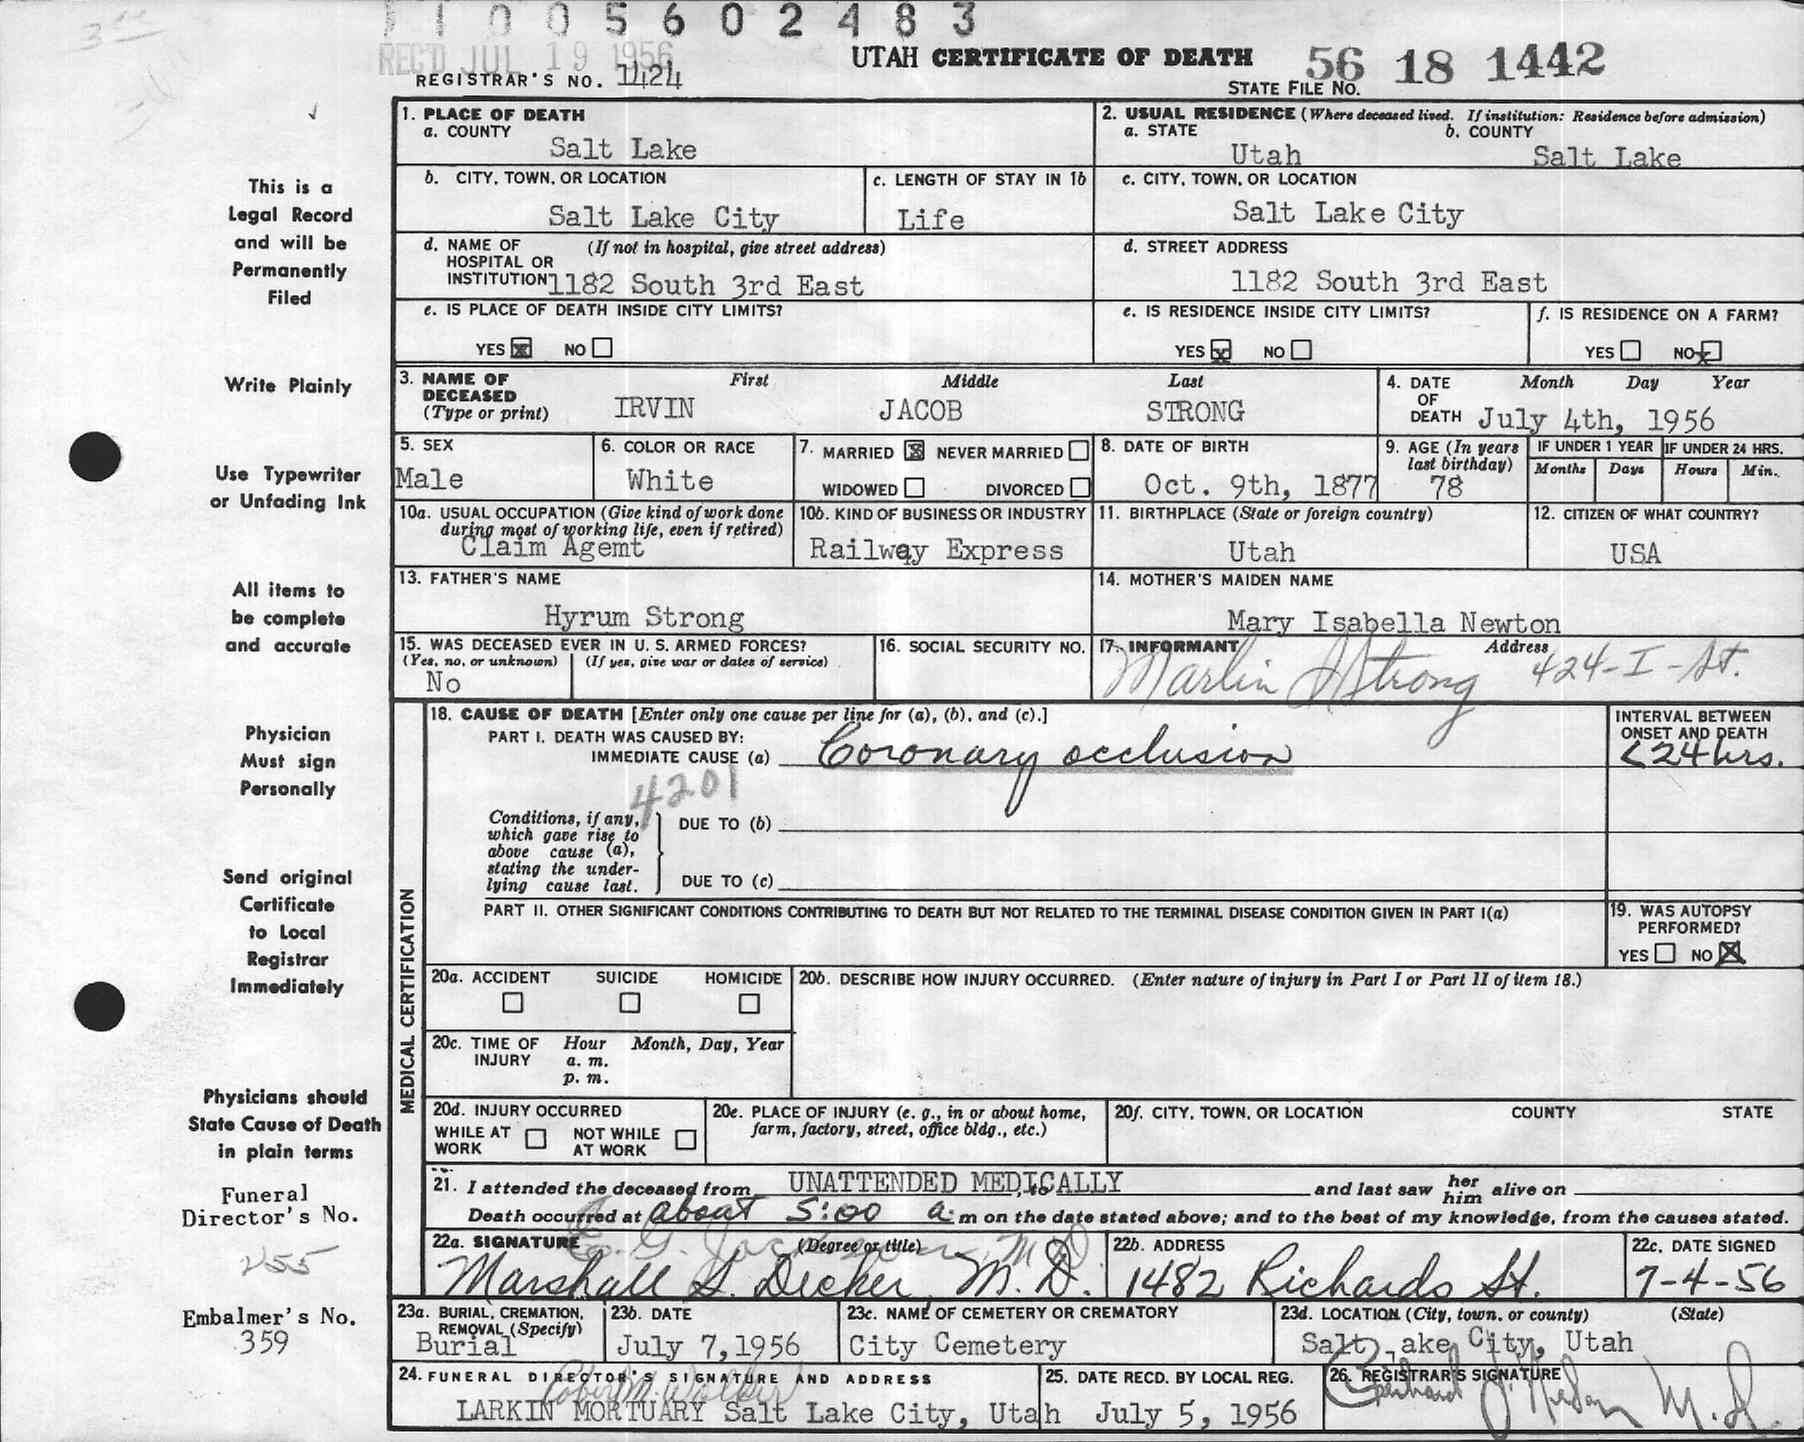 3
1 1 0 0 5 6 0 2 4 8 3
REC'D JUL 19 1956
UTAH CERTIFICATE OF DEATH
56 18 1442
REGISTRAR'S NO. 1424
STATE FILE NO.
This is a
Legal Record
and will be
Permanently
Filed
Write Plainly
Use Typewriter
or Unfading Ink
All items to
be complete
and accurate
Physician
Must sign
Personally
Send original
Certificate
to Local
Registrar
Immediately
Physicians should
State Cause of Death
in plain terms
Funeral
Director's No.
255
Embalmer's No.
359
1. PLACE OF DEATH
a. COUNTY
Salt Lake
2. USUAL RESIDENCE (Where deceased lived. If institution: Residence before admission)
a. STATE b. COUNTY
Utah Salt Lake
b. CITY, TOWN, OR LOCATION
Salt Lake City
c. LENGTH OF STAY IN 1b
Life
c. CITY, TOWN, OR LOCATION
Salt Lake City
d. NAME OF (If not in hospital, give street address)
HOSPITAL OR
INSTITUTION 1182 South 3rd East
d. STREET ADDRESS
1182 South 3rd East
e. IS PLACE OF DEATH INSIDE CITY LIMITS?
YES X NO
e. IS RESIDENCE INSIDE CITY LIMITS?
YES X NO
f. IS RESIDENCE ON A FARM?
YES NO X
3. NAME OF First Middle Last
DECEASED
(Type or print) IRVIN JACOB STRONG
4. DATE Month Day Year
OF
DEATH July 4th, 1956
5. SEX
Male
6. COLOR OR RACE
White
7. MARRIED X NEVER MARRIED
WIDOWED DIVORCED
8. DATE OF BIRTH
Oct. 9th, 1877
9. AGE (In years
last birthday)
78
IF UNDER 1 YEAR IF UNDER 24 HRS.
Months Days Hours Min.
10a. USUAL OCCUPATION (Give kind of work done
during most of working life, even if retired)
Claim Agemt
10b. KIND OF BUSINESS OR INDUSTRY
Railway Express
11. BIRTHPLACE (State or foreign country)
Utah
12. CITIZEN OF WHAT COUNTRY?
USA
13. FATHER'S NAME
Hyrum Strong
14. MOTHER'S MAIDEN NAME
Mary Isabella Newton
15. WAS DECEASED EVER IN U. S. ARMED FORCES?
(Yes, no, or unknown) (If yes, give war or dates of service)
No
16. SOCIAL SECURITY NO.
17. INFORMANT Address
Marlin J Strong 424-I-St.
MEDICAL CERTIFICATION
18. CAUSE OF DEATH [Enter only one cause per line for (a), (b), and (c).]
PART I. DEATH WAS CAUSED BY:
IMMEDIATE CAUSE (a) Coronary occlusion
INTERVAL BETWEEN
ONSET AND DEATH
<24 hrs.
4201
Conditions, if any,
which gave rise to
above cause (a),
stating the under-
lying cause last.
DUE TO (b)
DUE TO (c)
PART II. OTHER SIGNIFICANT CONDITIONS CONTRIBUTING TO DEATH BUT NOT RELATED TO THE TERMINAL DISEASE CONDITION GIVEN IN PART I(a)
19. WAS AUTOPSY
PERFORMED?
YES NO X
20a. ACCIDENT SUICIDE HOMICIDE
20b. DESCRIBE HOW INJURY OCCURRED. (Enter nature of injury in Part I or Part II of item 18.)
20c. TIME OF Hour Month, Day, Year
INJURY a. m.
p. m.
20d. INJURY OCCURRED
WHILE AT NOT WHILE
WORK AT WORK
20e. PLACE OF INJURY (e. g., in or about home,
farm, factory, street, office bldg., etc.)
20f. CITY, TOWN, OR LOCATION COUNTY STATE
21. I attended the deceased from UNATTENDED MEDICALLY, to and last saw her him alive on
Death occurred at about 5:00 a. m on the date stated above; and to the best of my knowledge, from the causes stated.
22a. SIGNATURE (Degree or title)
Marshall S. Decker, M.D.
22b. ADDRESS
1482 Richards St.
22c. DATE SIGNED
7-4-56
23a. BURIAL, CREMATION,
REMOVAL (Specify)
Burial
23b. DATE
July 7, 1956
23c. NAME OF CEMETERY OR CREMATORY
City Cemetery
23d. LOCATION (City, town, or county) (State)
Salt Lake City, Utah
24. FUNERAL DIRECTOR'S SIGNATURE AND ADDRESS
LARKIN MORTUARY Salt Lake City, Utah
25. DATE RECD. BY LOCAL REG.
July 5, 1956
26. REGISTRAR'S SIGNATURE
M.D.